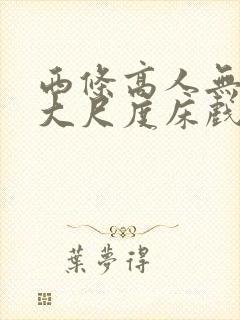 西條高人無
大尺度床戲
葉夢得